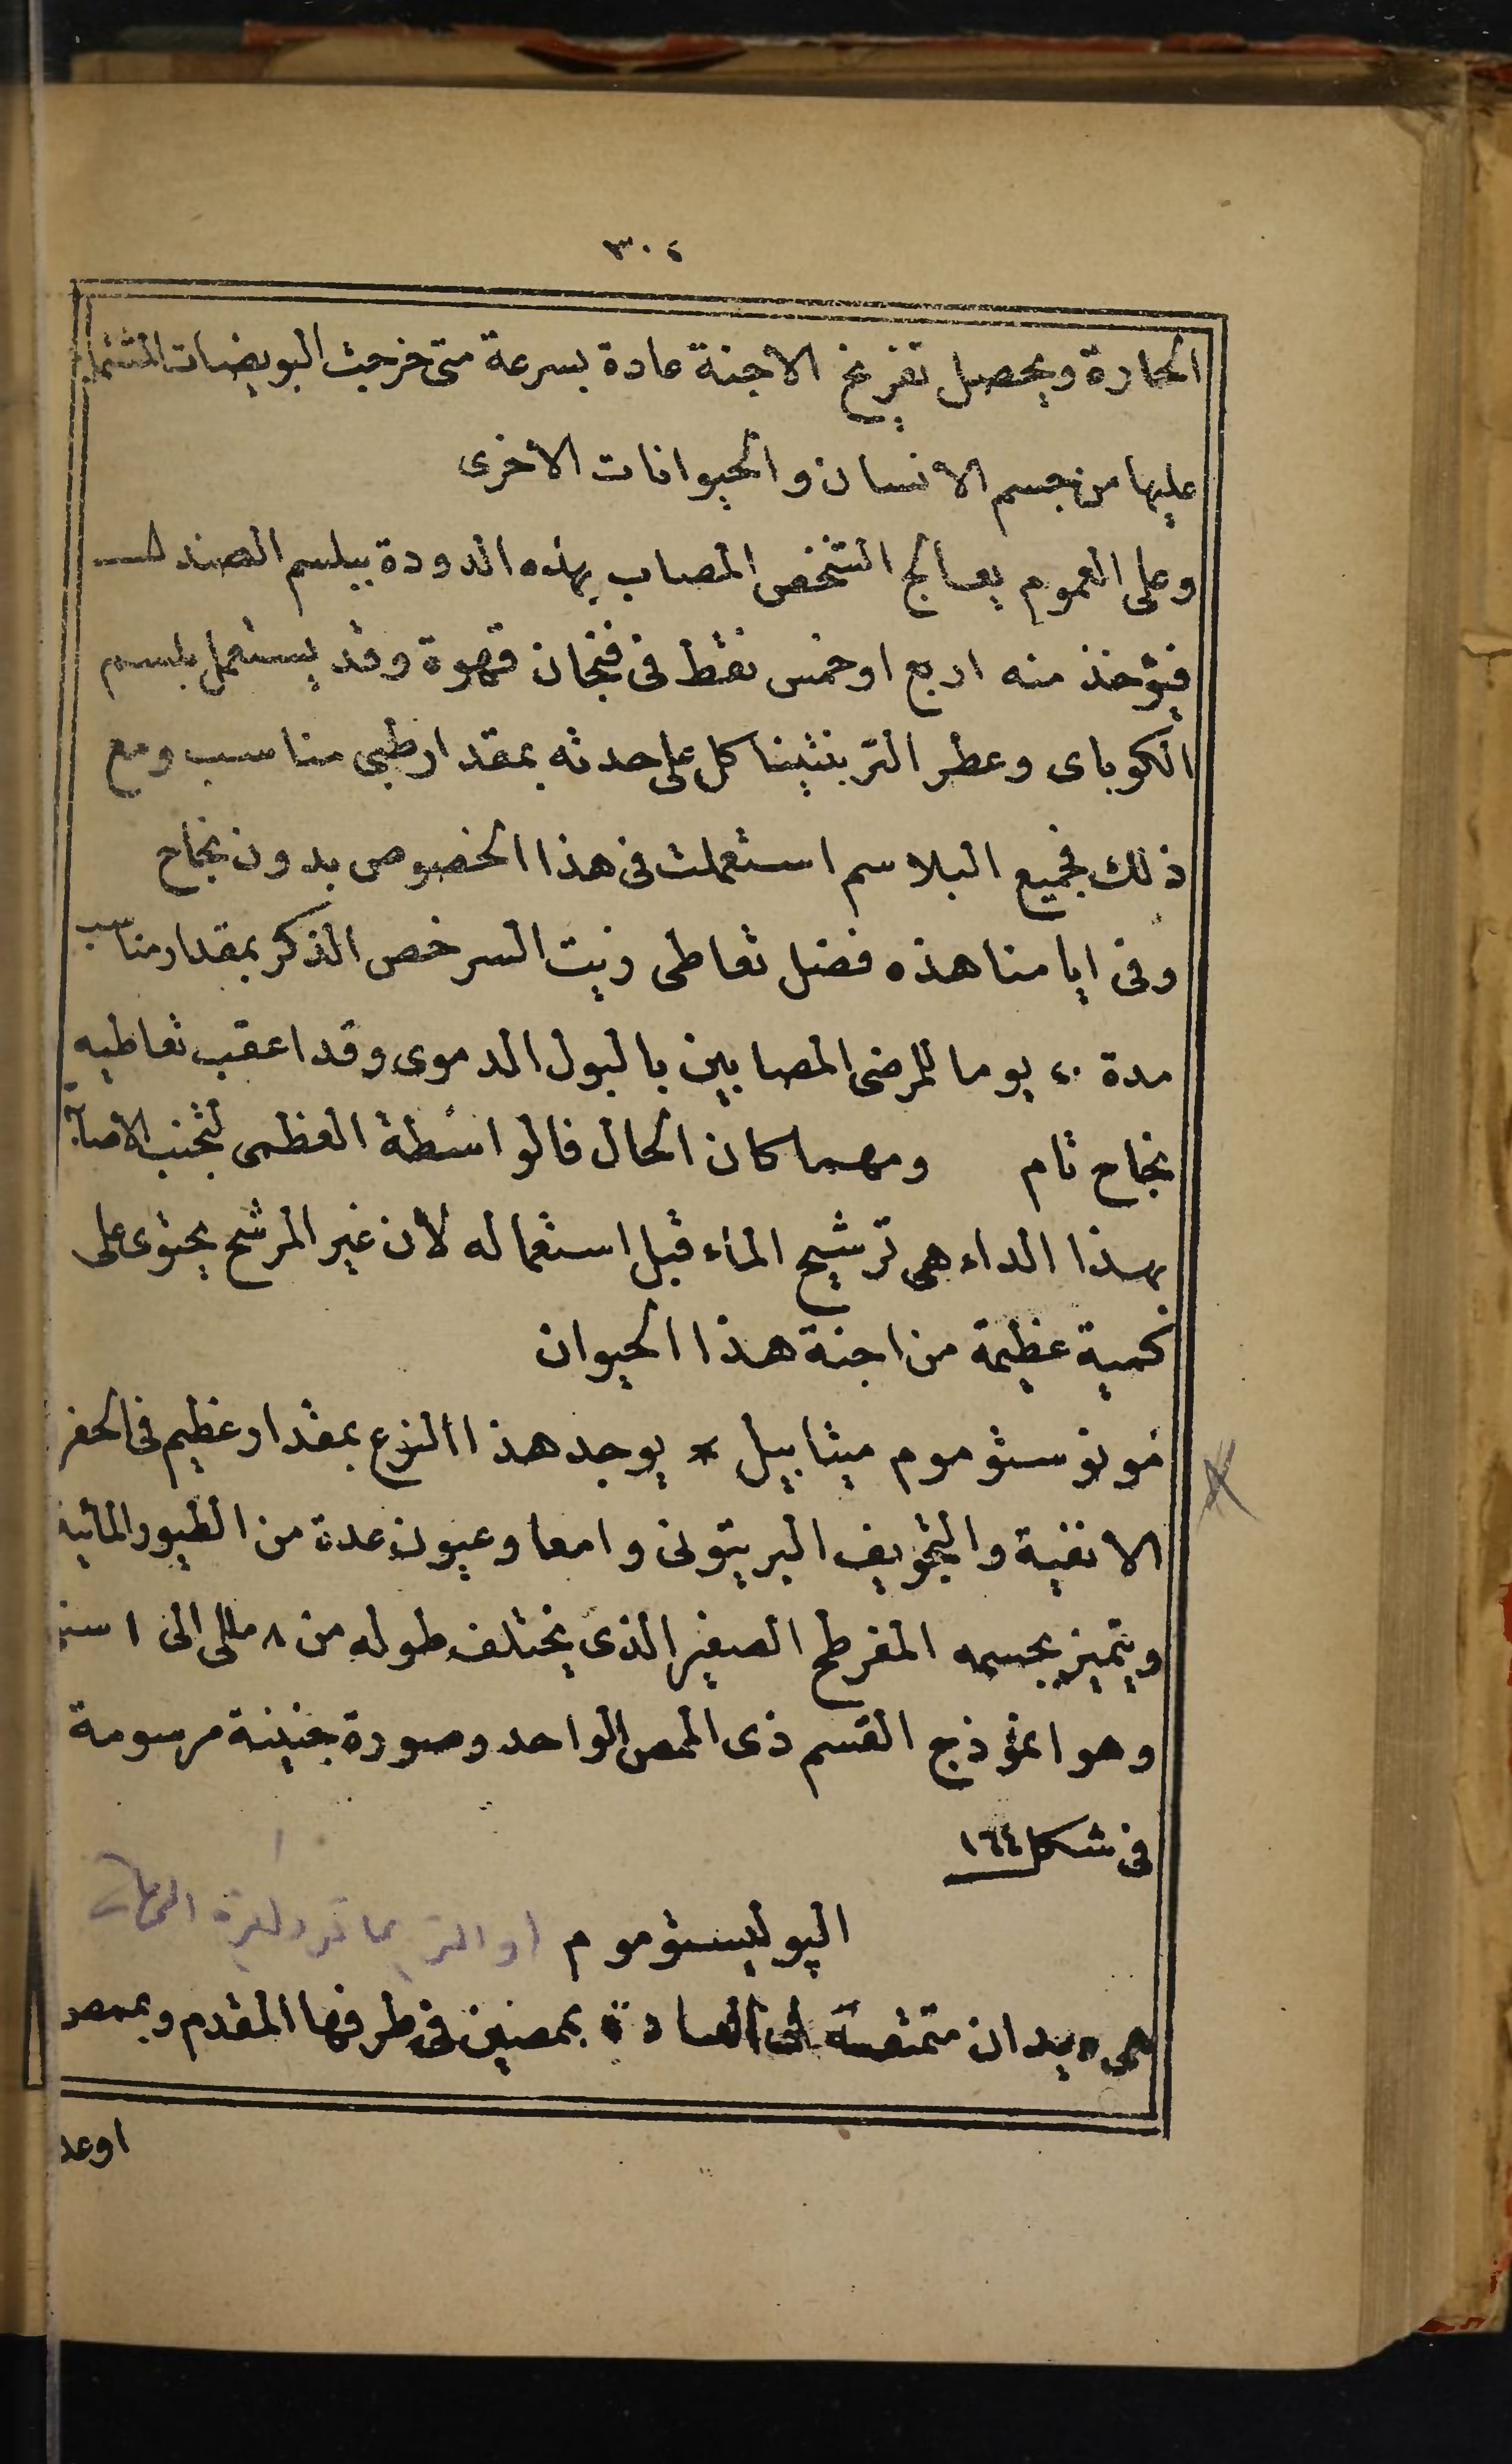 ٣٠٤
الحارة ويحصل تفريخ الاجنة عادة بسرعة متى خرجت البويضات المشتملة
عليها من جسم الانسان والحيوانات الاخرى
وعلى العموم يعالج الشخص المصاب بهذه الدودة ببلسم الصندل
فيؤخذ منه اربع اوخمس نقط فى فنجان قهوة وقد يستعمل بلسم
الكوباى وعطر التربنتينا كل على حدته بمقدار طبى مناسب ومع
ذلك فجميع البلاسم استعملت فى هذا الخصوص بدون نجاح
وفى ايامنا هذه فضل تعاطى زيت السرخص الذكر بمقدار مناسب
مدة ٤٠ يوما للمرضى المصابين بالبول الدموى وقد اعقب تعاطيه
نجاح تام ومهما كان الحال فالواسطة العظمى لتجنب الاصابة
بهذا الداء هى ترشيح الماء قبل استعماله لأن غير المرشح يحتوى على
كمية عظيمة من اجنة هذا الحيوان
مونوستوموم ميتابيل * يوجد هذا النوع بمقدار عظيم فى الحفر
الانفية والتجويف البريتونى وامعا وعيون عدة من الطيور المائية
ويتميز بجسمه المفرطح الصغير الذى يختلف طوله من ٨ مللى الى ١ سنتي
وهو انموذج القسم ذى الممص الواحد وصورة جنينة مرسومة
فى شكل ١٦٤
الپوليستوموم او التريماتود
هى ديدان متمتعة فى العادة بممصين فى طرفها المقدم وبممص
اوعد